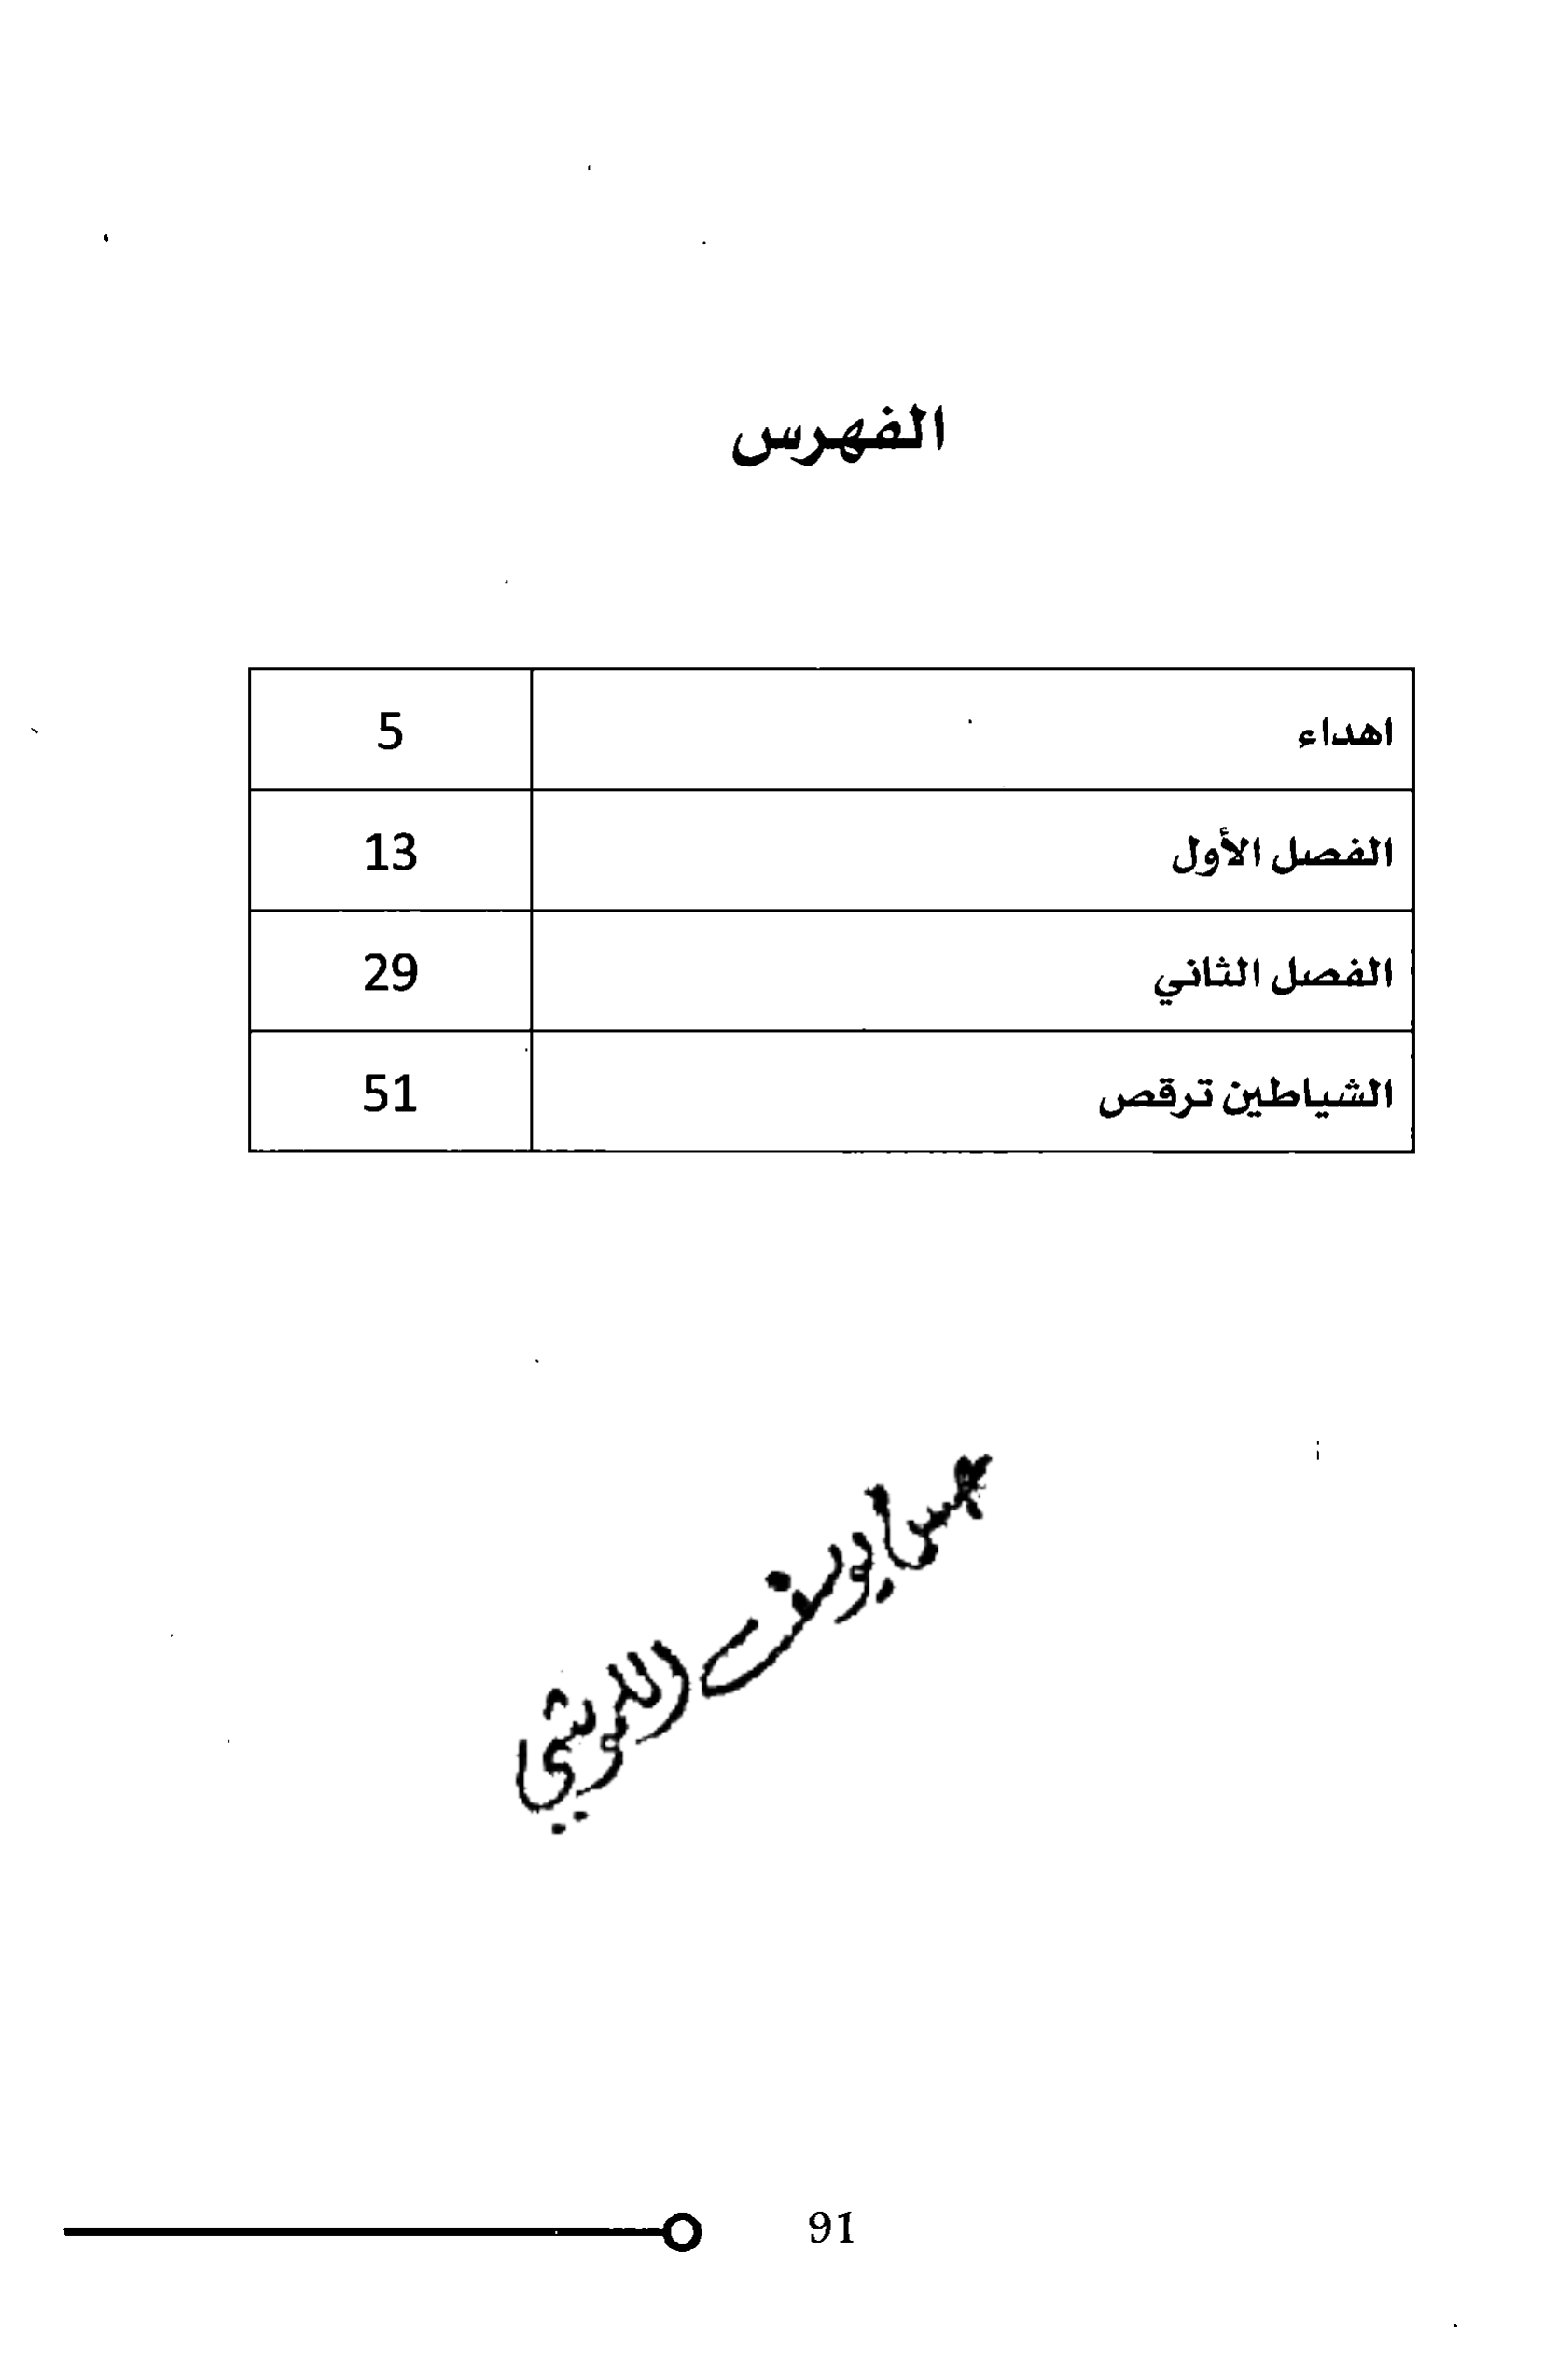 الفهرس
اهداء 5
الفصل الأول 13
الفصل الثاني 29
الشياطين ترقص 51
يوسف
91